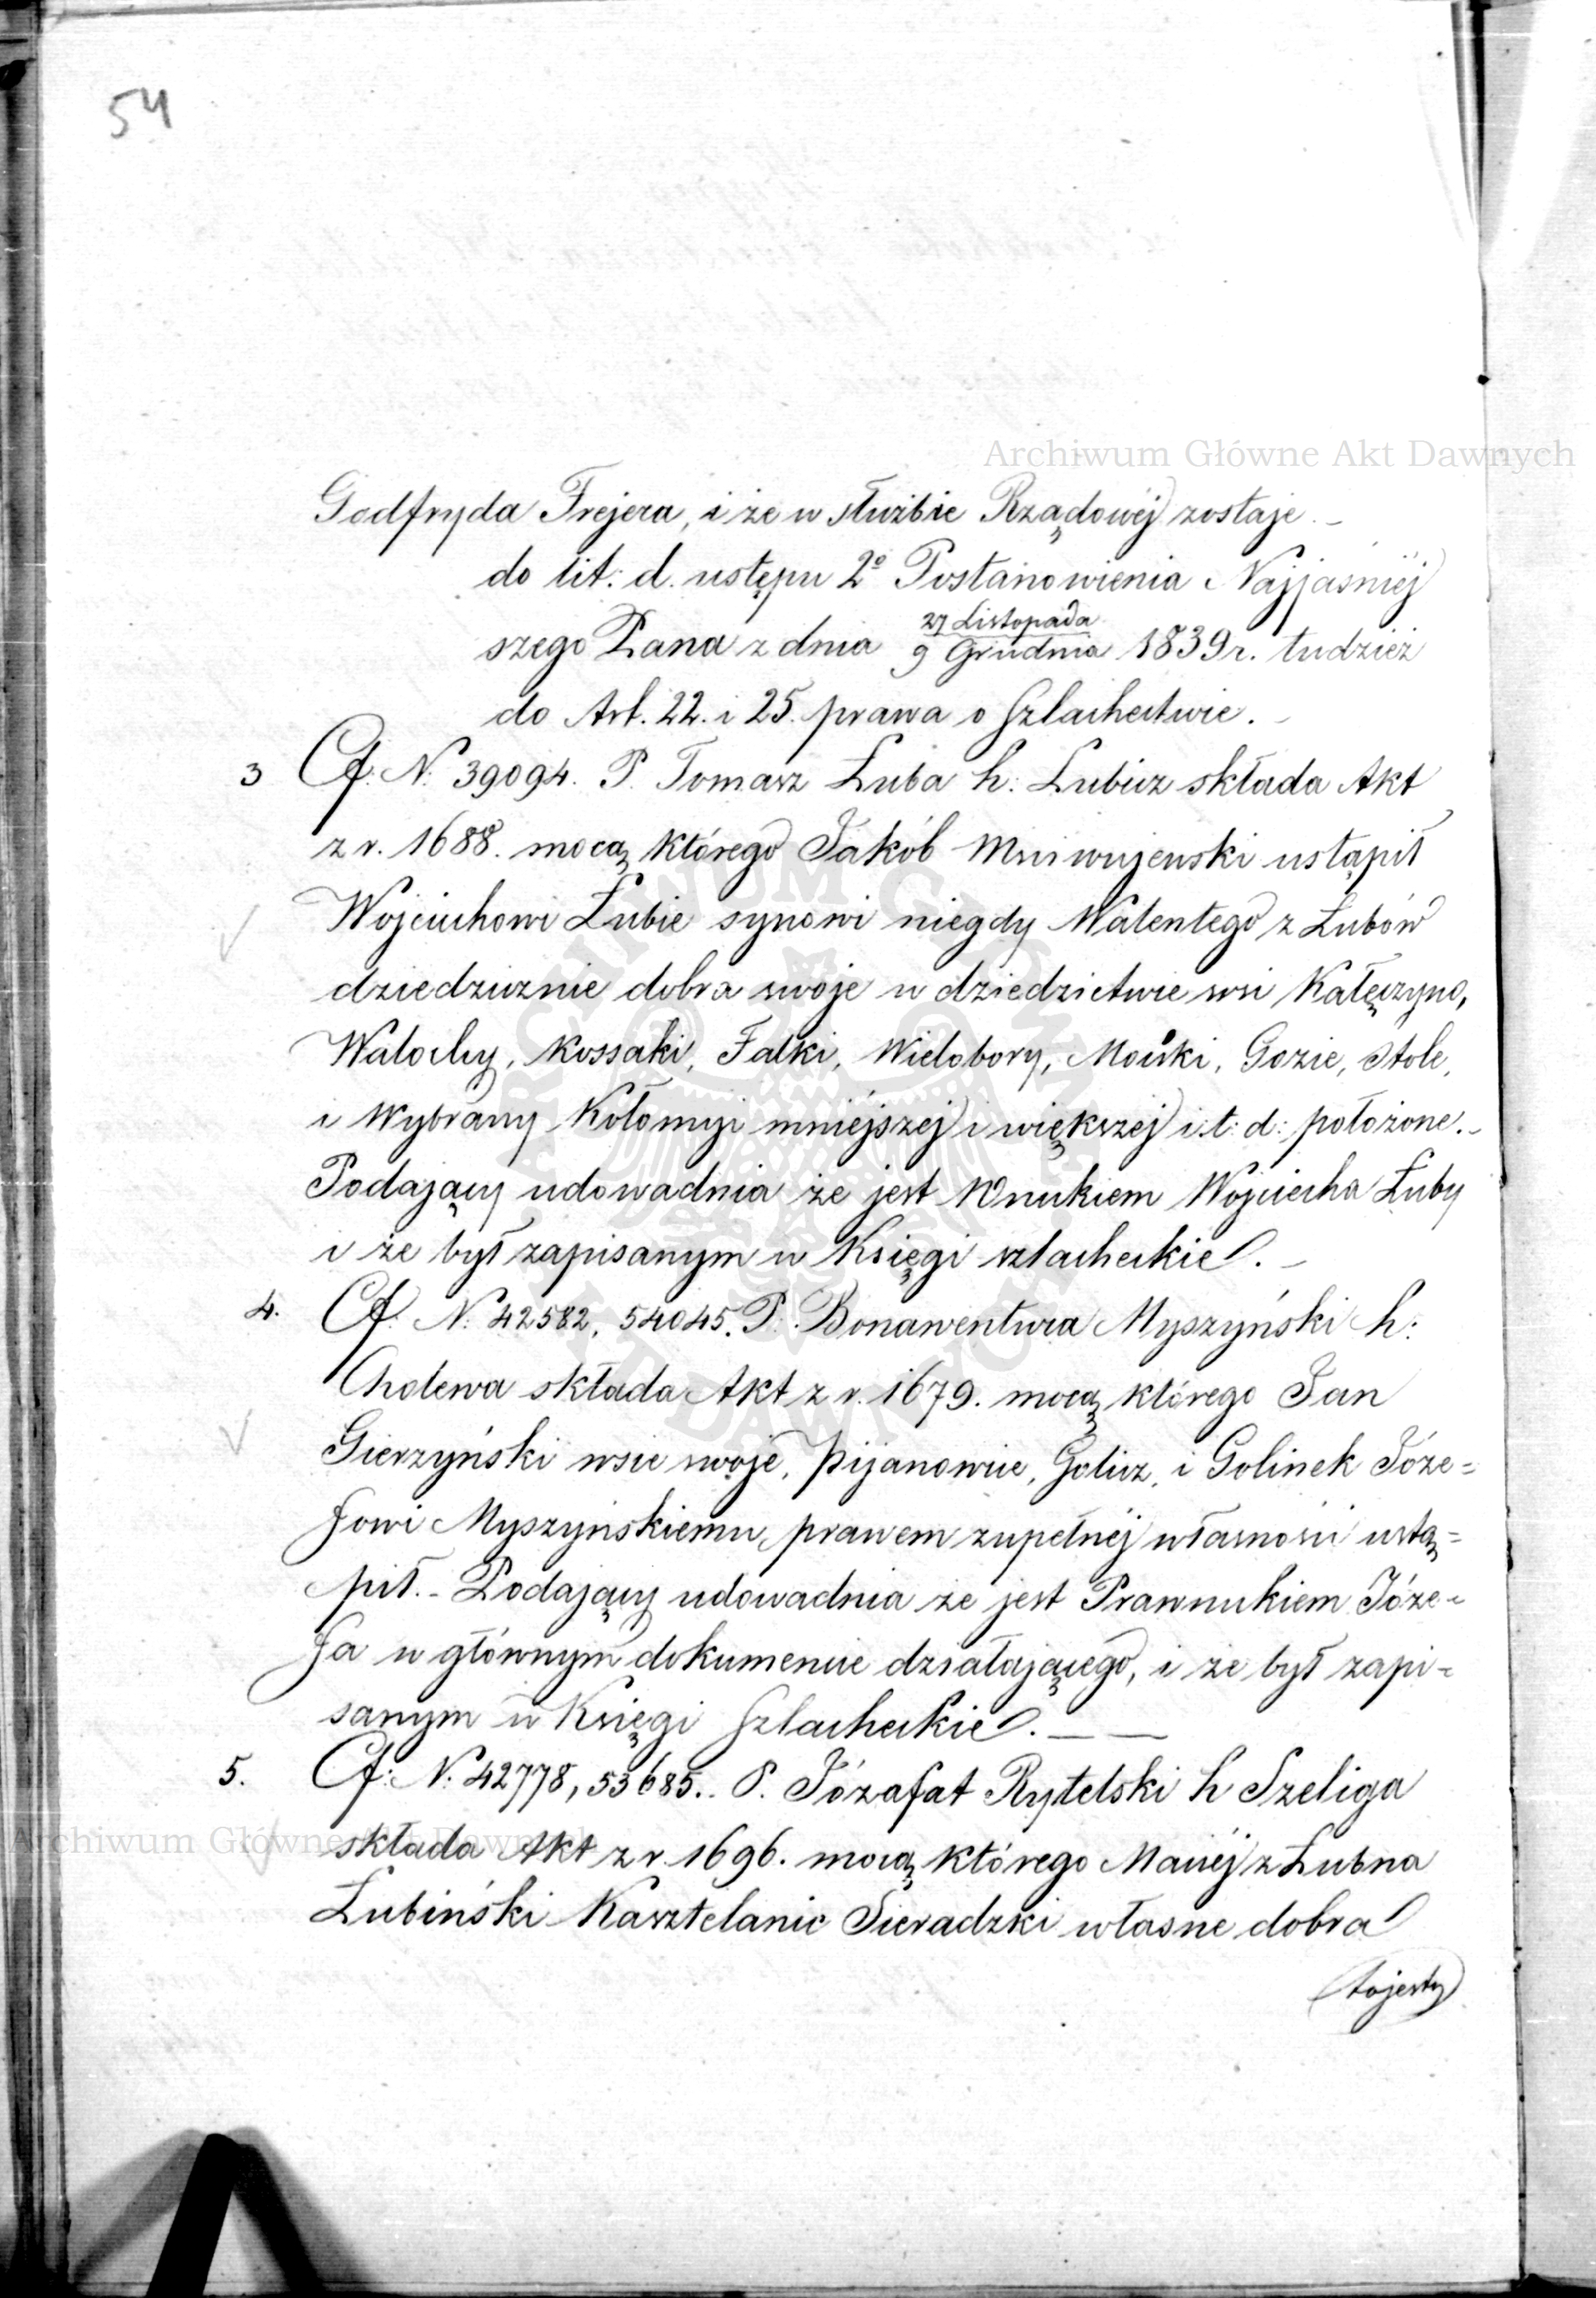 54
Archiwum Główne Akt Dawnych
Godfryda Frejera, i że w służbie Rządowéj zostaje. –
do lit: d. ustępu 2º Postanowienia Najjaśniéj
szego Pana z dnia 27 Listopada / 9 Grudnia 1839 r. tudzież
do Art. 22. i 25. prawa o Szlachectwie. –
3 Cf: N: 39094. P. Tomasz Łuba h: Lubicz składa Akt
z r. 1688. mocą którego Jakób ustąpił
Wojciechowi Łubie synowi niegdy Walentego z Łubów
dziedzicznie dobra swoje w dziedzictwie wsi Kałęczyno,
Walochy, Kossaki, Falki, Wielobory, Mościki, Gozie, Stole,
i Wybrany Kołomyi mniéjszéj i większéj i t: d: położone. –
Podający udowadnia że jest Wnukiem Wojciecha Łuby
i że był zapisanym w Księgi szlacheckie. –
4. Cf: N: 42582, 54045. P. Bonawentura Myszyński h:
Cholewa składa Akt z r. 1679. mocą którego Jan
Gierzyński wsie swoje, Pijanowice, Golicz, i Golinek Józe=
fowi Myszyńskiemu prawem zupełnéj własności ustą=
pił. – Podający udowadnia że jest Prawnukiem Józe=
fa w głównym dokumencie działającego, i że był zapi=
sanym w Księgi Szlacheckie. — —
5. Cf: N: 42778, 53685. P. Józafat Rytelski h Szeliga
Archiwum Główne Akt Dawnych
składa Akt z r. 1696. mocą którego Maciéj z Łubna
Łubiński Kasztelanic Sieradzki własne dobra
tojesty
ARCHIWUM GŁÓWNE
AKT DAWNYCH